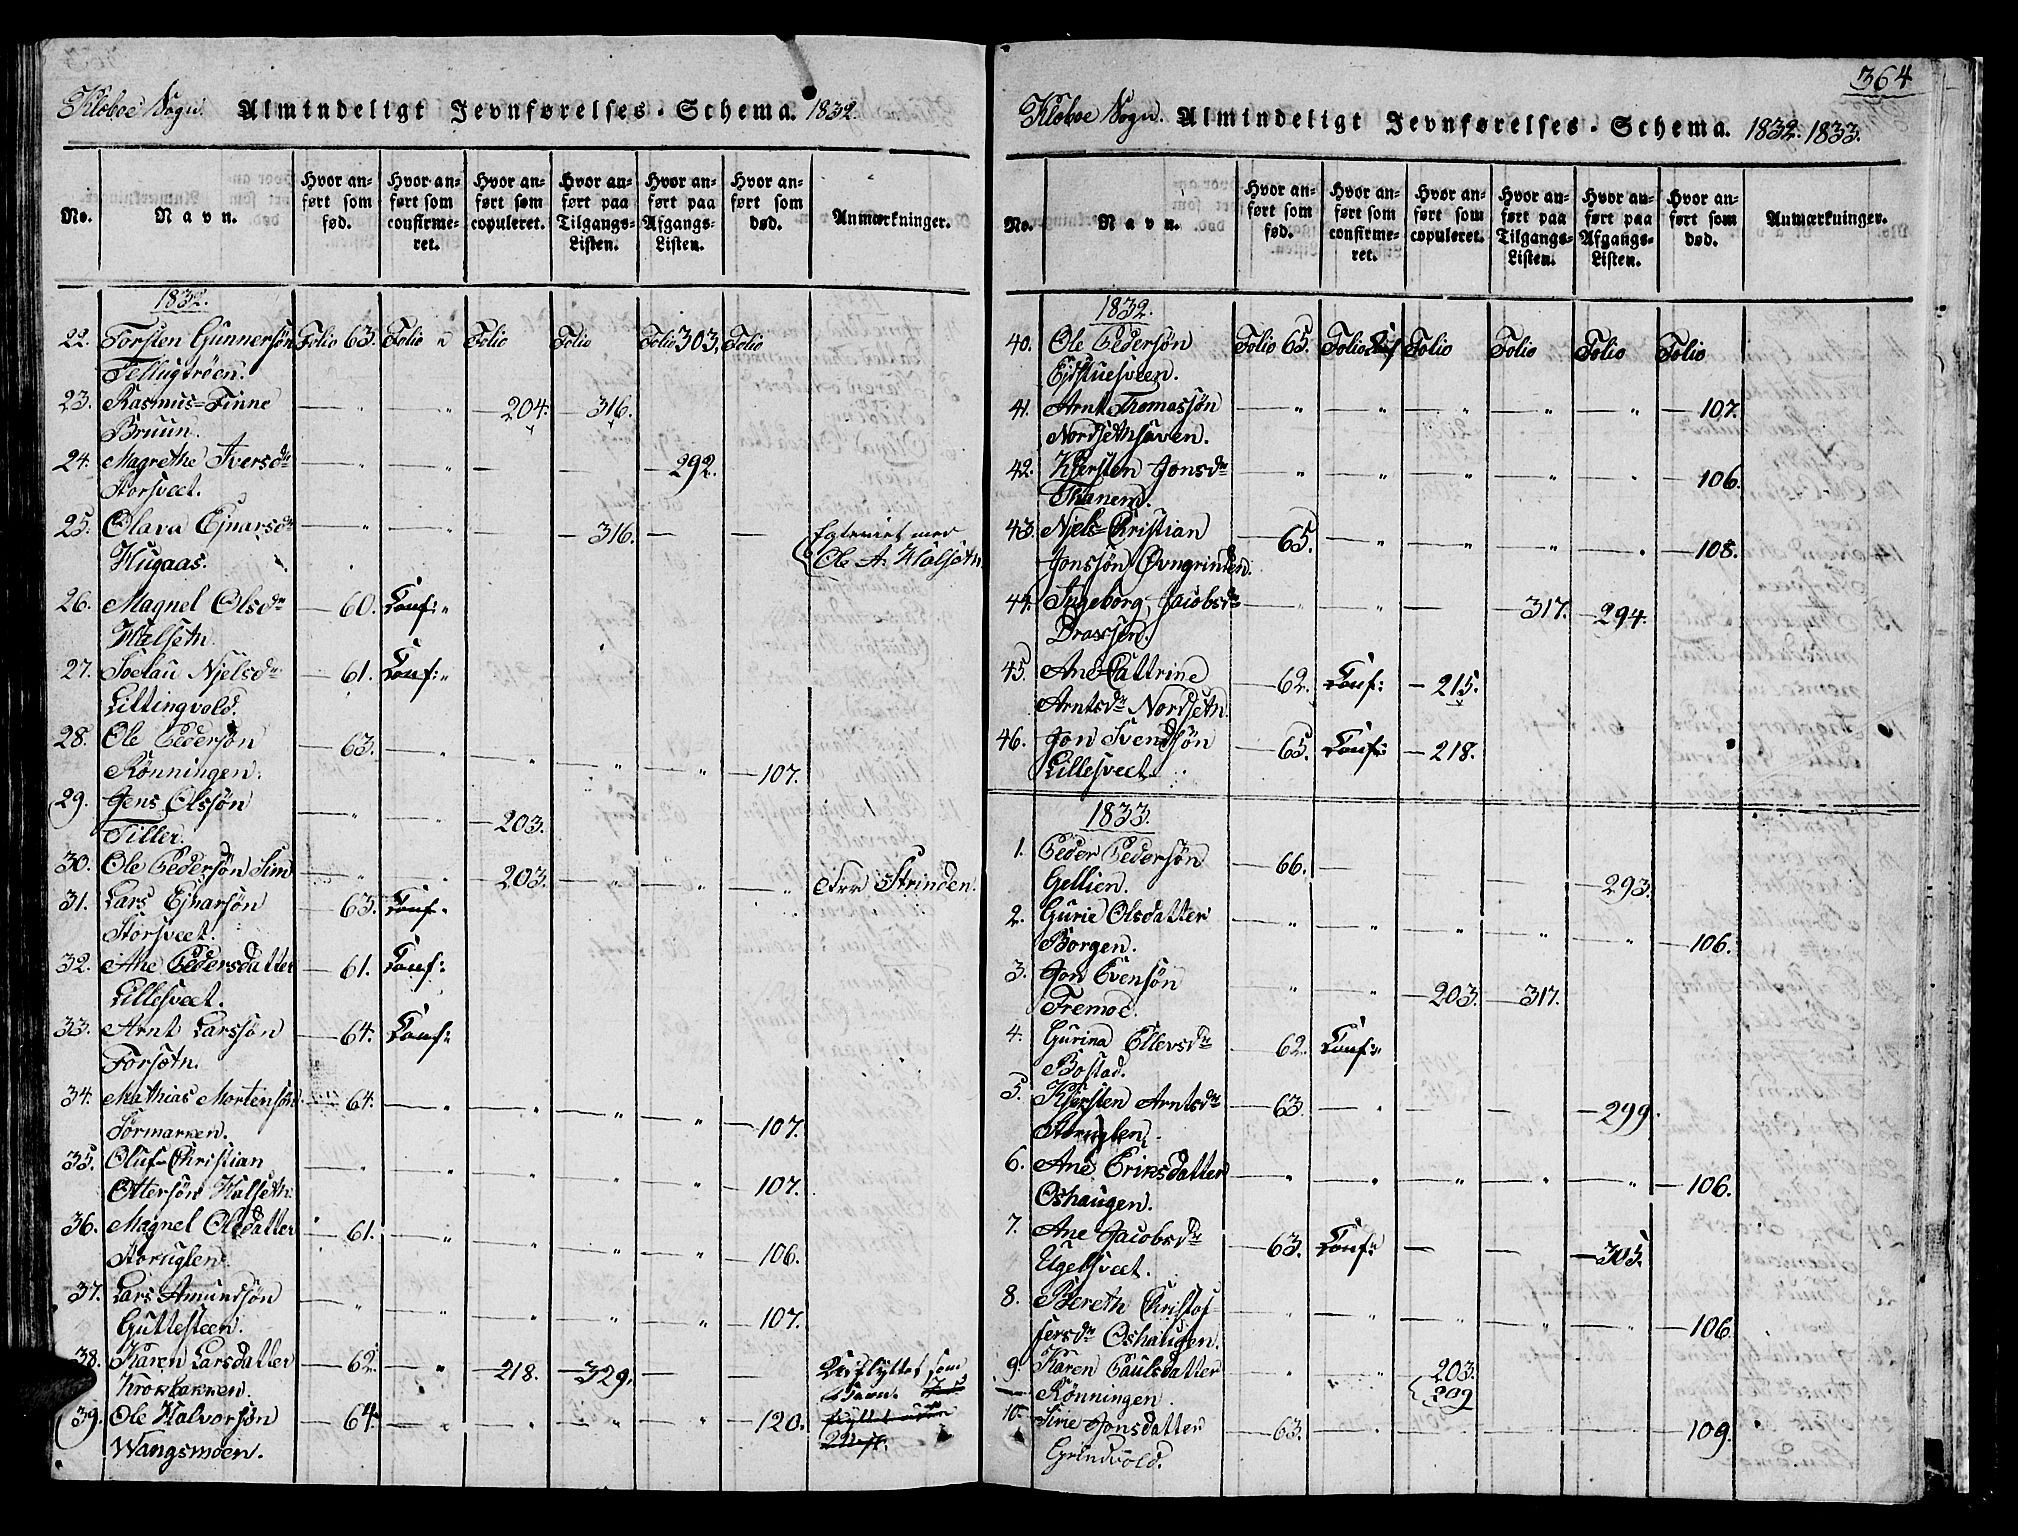 Klæboe Sogn. Almindeligt Jevnførelses-Schema. 1832.
No. Navn. Hvor anført som fød. Hvor anført som confirmeret. Hvor anført som copuleret. Hvor anført paa Tilgangs-Listen. Hvor anført paa Afgangs-Listen. Hvor anført som død. Anmærkninger.
1832.
22. Torsten Gunnersøn Folio 63. Folio " Folio Folio Folio 303. Folio
Tellugrøen.
23. Rasmus=Finne — " — " — 204. — 316.
Bruun.
24. Magrethe Iversdr — " — " — — — 292.
Storsveet.
25. Olava Ejnarsdr — " — " — 316. — — Egteviet med
Hugaas. Ole A. Halsetn.
26. Magnel Olsdr — 60. Conf: "
Halsetn.
27. Soelau Njelsdr — 61. Conf: "
Littingvold.
28. Ole Pedersøn — 63. — " — " — " — " — 107.
Rønningen.
29. Jens Olssøn — " — " — 203.
Tiller.
30. Ole Pedersøn Sim — " — " — 203. — " — " — " Fra Strinden.
31. Lars Ejnarsøn — 63. Conf:
Storsveet.
32. Ane Pedersdatter — 61. Conf:
Lillesveet.
33. Arnt Larssøn — 64. Conf:
Forsetn.
34. Mathias Mortensøn — 64. — " — " — " — " — 107.
Sørmarken.
35. Oluf=Christian — " — " — " — " — " — 107.
Ottersøn Halsethn.
36. Magnel Olsdatter — 61. — " — " — " — " — 106.
Storuglen.
37. Lars Amundsøn — " — " — " — " — " — 107.
Guttesteen.
38. Karen Larsdatter — 62. — " — 218. — 329. — —
Krokbakken.
39. Ole Halvorsøn — 64. — " — " — " — " — 120.
Wangsmoen.
364
Klæboe Sogn. Almindeligt Jevnførelses-Schema. 1832. 1833.
No. Navn. Hvor anført som fød. Hvor anført som confirmeret. Hvor anført som copuleret. Hvor anført paa Tilgangs-Listen. Hvor anført paa Afgangs-Listen. Hvor anført som død. Anmærkninger.
1832.
40. Ole Pedersøn Folio 65. Folio Conf Folio Folio Folio Folio
Ejdstuesveen.
41. Arnt Thomassøn — " — " — " — " — " — 107.
Nordsethhaven.
42. Kjersten Jonsdr — " — " — " — " — " — 106.
Thanem.
43. Njels=Christian — 65. — " — " — " — " — 108.
Jonssøn Øvngrinden.
44. Ingeborg Jacobsdr — " — " — — 317. — 294.
Braasen.
45. Ane Cattrine — 62. Conf: — 215.
Arntsdr Nordsetn.
46. Jon Svendsøn — 65. Conf: — 218.
Lillesveet.
1833.
1. Peder Pedersøn — 66. — — — — 293.
Gellien.
2. Gurie Olsdatter — " — " — " — " — " — 106.
Borgen.
3. Jon Evensøn — " — " — 203. — 317.
Fremoe.
4. Gurina Ellevsdr — 62. Conf: "
Bostad.
5. Kjersten Arntsdr — 63. — " — — — 299.
Storuglen.
6. Ane Eriksdatter — " — " — " — " — " — 106.
Oshaugen.
7. Ane Jacobsdr — 63. Conf: — — — 305.
Ugelsveet.
8. Bereth Christof- — " — " — " — " — " — 106.
fersdr Oshaugen.
9. Karen Paulsdatter — " — " 203.
Rønningen. 209
10. Sirie Jonsdatter — 63. — " — " — " — " — 109.
Grindvold.